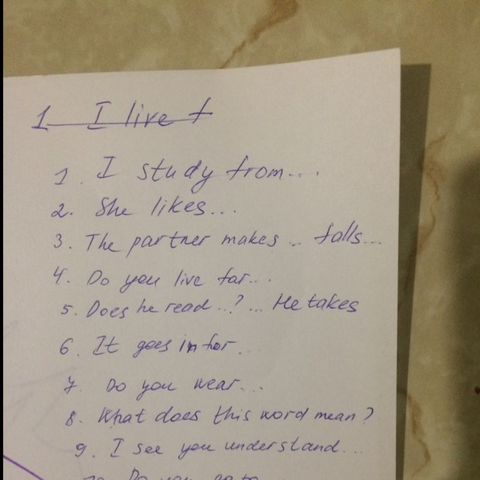 1 I live f
1. I study from...
2. She likes...
3. The partner makes .. falls...
4. Do you live far...
5. Does he read...?... He takes
6. It goes in for...
7. Do you wear...
8. What does this word mean?
9. I see you understand...
10. Do you go to